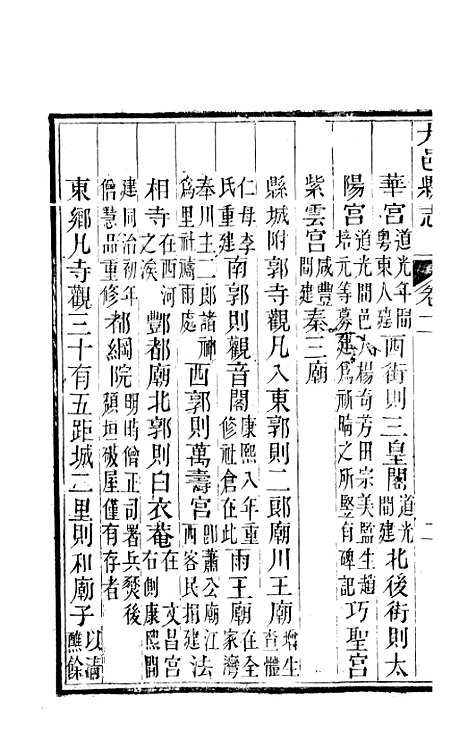 大邑縣志 卷二 二
華宮道光年間粵東人建西街則三皇閣道光間建北後街則太
陽宮道光間邑人楊奇芳田宗美監生趙培元等募建為祈晴之所豎有碑記巧聖宮
紫雲宮咸豐間建秦三廟
縣城附郭寺觀凡入東郭則二郎廟川王廟增生查體
仁母李氏重建南郭則觀音閣康熙入年重修社倉在此雨王廟在全家灣
奉川主二郎諸神為里社禱雨處西郭則萬壽宮即蕭公廟江西客民捐建法
相寺在西河之涘酆都廟北郭則白衣菴在文昌宮右側康熙間
建同治初年僧慧品重修都綱院明時僧正司署兵燹後頹垣破屋僅有存者
東鄉凡寺觀三十有五距城二里則和廟子以清醮餘